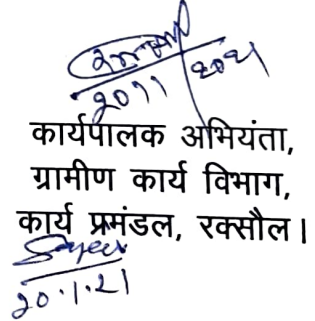 20/1/2021
कार्यपालक अभियंता,
ग्रामीण कार्य विभाग,
कार्य प्रमंडल, रक्सौल।
20.1.21